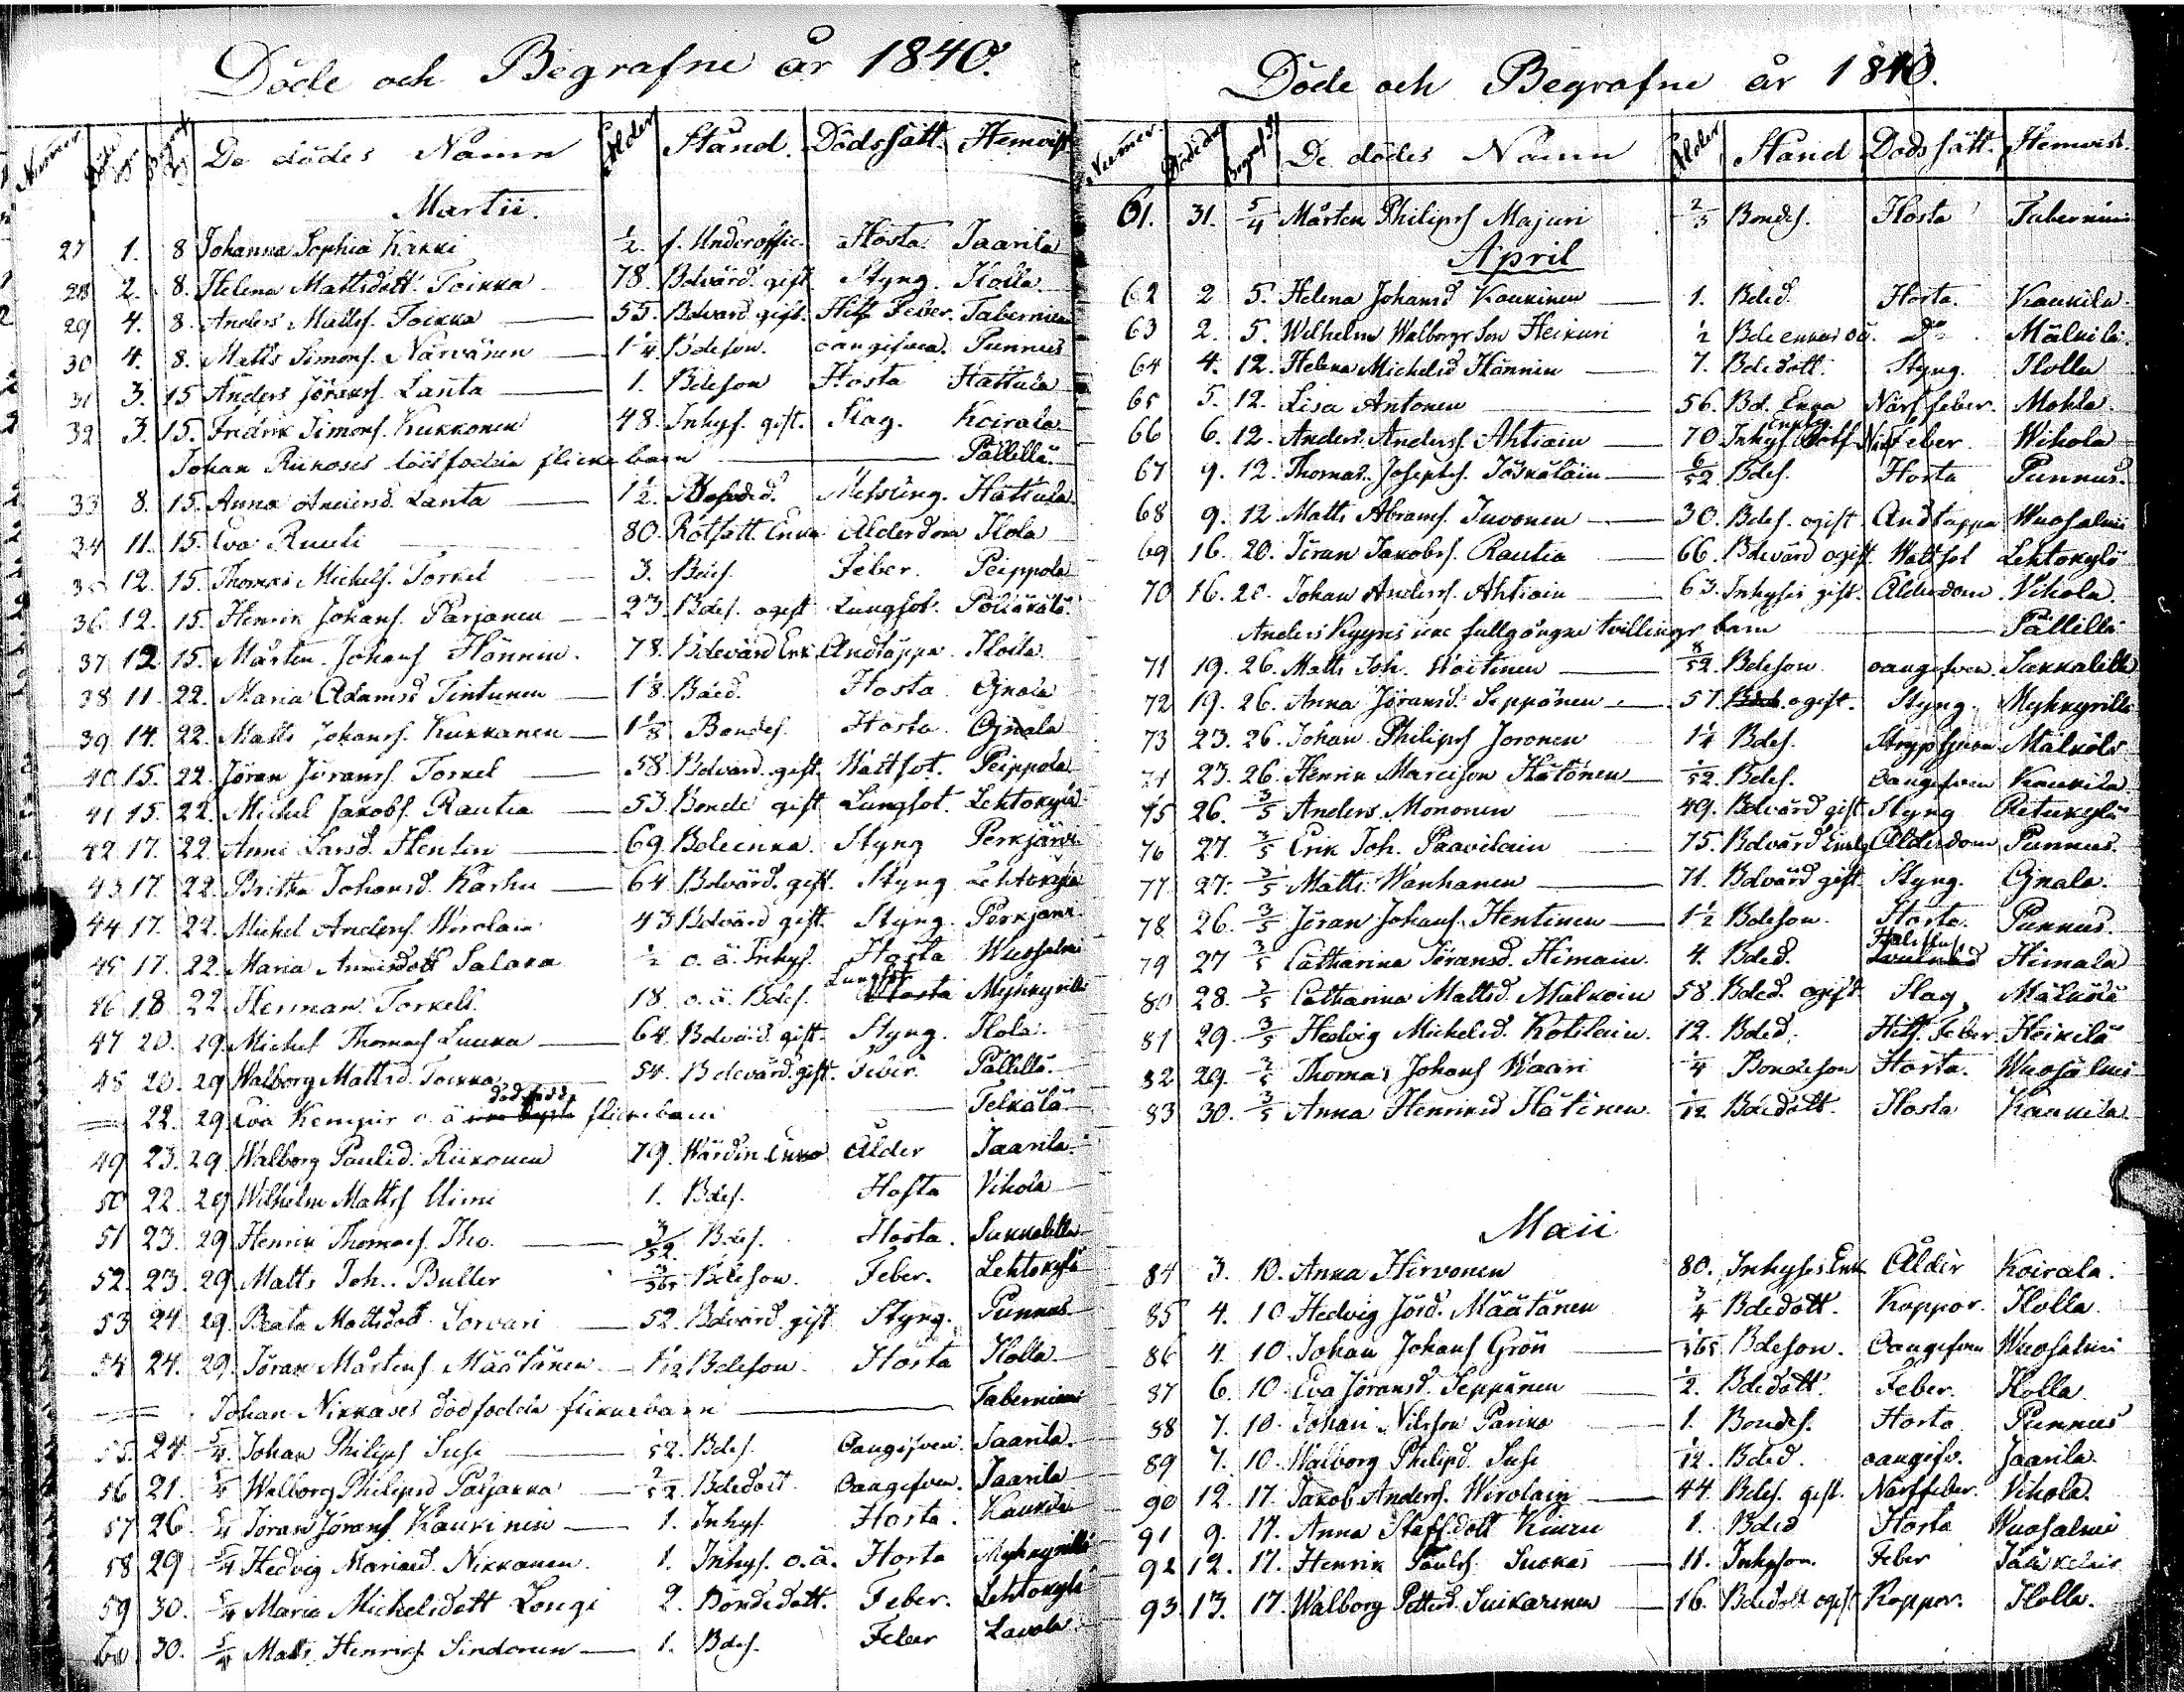 Döde och Begrafne år 1840.
Numer Döde dagen Begraf. dag De dödes Namn Ålder Stånd. Dödssätt. Hemvist.
Martii.
27 1. 8 Johanna Sophia Kakki 1/2. s. Underoffic. Hosta. Jaarila
28 2. 8. Helena Mattsdott. Toikka 78. Bdvärd. gift. Styng. Ilola.
29 4. 8. Anders Mattss. Toikka 55. Bdvärd. gift. Hits Feber. Taberniemi
30 4. 8. Matts Simons. Närvänen 1/4 Bdeson. oangifven. Punnus
31 3. 15 Anders Jörans. Lanta 1. Bdeson Hosta Hattula
32 3. 15. Fredrik Simons. Kukkonen 48. Inhys. gift. Slag. Koirala
Johan Riikoses dödfödda flickebarn Pällilä.
33 8. 15. Anna Andersd. Lanta 1 1/2. Messling. Hattula
34 11. 15. Eva Ruuti 80. Rotsatt. Enka Ålderdom Ilola
35 12. 15. Thomas Michels. Torkel 3. Bdes. Feber. Peippola
36. 12. 15. Henrik Johans. Parjanen 23. Bdes. ogift Lungsot.
37 12 15. Mårten Johans Hännin. 78. Bdevärd Enk. Andtäppa. Ilola.
38 11 22. Maria Adamsd Tintunen 1/8. Bded. Hosta Ojnala
39 14. 22. Matts Johans. Kukkanen 1/8 Bondes. Hosta. Ojnala
40 15. 22. Jöran Jörans. Torkel 58. Bdvärd. gift. Wattsot. Peippola
41 15. 22. Michel Jakobs. Rautia 53. Bonde gift Lungsot. Lehtokylä
42 17. 22. Anna Larsd. Henten 69. Bdeenka. Styng Perkjärvi
43 17. 22. Britha Johansd. Karhu 64. Bdvärd. gift. Styng Lehtokylä
44 17. 22. Michel Anders. Wirolain 43 Bdvärd gift. Styng. Perkjärvi
45 17. 22. Maria Annisdott Salaka 1/2 o. ä. Inhys. Hosta Wuosalmi
46 18 22. Herman Torkell. 18. o. ä. Bdes. Hosta Lungsot Myhkyrilä
47 20. 29. Michel Thomas Luuka 64. Bdvärd. gift. Styng. Ilola.
48 20. 29 Walborg Mattsd. Toikka 54. Bdevärd. gift. Feber. Pällilä.
22. 29. Eva Kempir o. ä. dödfödd flickebarn Telkälä
49 23. 29 Walborg Paulsd. Riikonen 79. Wärdin Enka Ålder Jaarila.
50 22. 29 Wilhelm Mattss Uimi 1. Bdes. Hosta Vihola
51 23. 29 Henrik Thomas. Iho. 3/52. Bdes. Hosta. Sukkalilla
52. 23. 29. Matts Joh. Buller 3/365 Bdeson. Feber. Lehtokylä
53 24 29. Beata Mattsdott. Sorvari 52. Bdvärd gift Styng. Punnus
54 24. 29. Jöran Mårtens. Määtänen 1/12 Bdeson. Hosta Ilolla
Johan Nikkases dödfödda flickebarn Taberniemi
55. 24. 5/4. Johan Philips Susi 1/52. Bdes. Oangifven. Jaarila.
56 21. 5/4 Walborg Philipsd Parjanka 2/52. Bdedott Oangifven. Jaarila
57 26. 5/4 Jöran Jörans Kaukinen 1. Inhys. Hosta. Kaukila
58 29 5/4 Hedvig Mariasd. Nikkanen. 1. Inhys. o. ä. Hosta Myhkyrilä
59 30. 5/4 Maria Michelsdott Longi 2. Bondedott. Feber. Lehtokylä
60. 30. 5/4 Matts Henriks. Sindonen 1. Bdes. Feber Lavola
Döde och Begrafne år 1840.
Numer. Döde dag Begrafd De dödes Namn Ålder Stånd Dödssätt. Hemvist.
61. 31. 5/4 Mårten Philips Majuri 2/3 Bondes. Hosta Taberniemi
April
62 2 5. Helena Johansd Kaukinen 1. Bded. Hosta. Kaukila
63 2. 5. Wilhelm Walborgs Son Heikuri 1/2 Bdeenkas oä. Do. Mälkilä.
64 4. 12. Helena Michelsd Hännin 7. Bdedott. Styng. Ilolla
65 5. 12. Lisa Antonen 56. Bd. Enka Närf feber. Mohla
66 6. 12. Anders Anderss. Ahtiain 70. Inhys. Enkl. Feber. Wihola
67 9. 12. Thomas Josephs. Jääskäläin 6/52 Bdes. Hosta Punnus.
68 9. 12. Matts Abrams. Juvonen 30. Bdes. ogift Andtäppa Wuosalmi
69 16. 20. Jöran Jakobs. Rautia 66. Bdevärd ogift Wattsot Lehtokylä
70 16. 20. Johan Anderss. Ahtiain 63. Inhyses gift. Ålderdom Vihola
Anders Kyyrös icke fullgångne tvillinge barn Pällilä
71 19. 26. Matts Joh. Woitinen 8/52. Bdeson oangifven. Sukkalilla
72 19. 26. Anna Jöransd. Seppänen 57. ogift. Styng. Myhkyrilä
73 23. 26. Johan Philips Joronen 1/4 Bdes. Strypsjukan Mälkölä
74 23. 26. Henrik Marcison Hätönen 1/52. Bdes. Oangifven Kaukila
75 26. 3/5 Anders Mononen 49. Bdvärd gift Styng Ritukylä
76 27. 3/5 Erik Joh. Paavilain 75. Bdvärd Enkl. Ålderdom Punnus.
77 27. 3/5 Matts Wanhanen 71. Bdvärd gift Styng. Ojnala.
78 26. 3/5 Jöran Johans. Hentinen 1 1/2 Bdeson. Hosta. Punnus.
79 27 3/5 Catharina Jöransd. Himain. 4. Bded. Halssjuk. Himala
80 28. 3/5 Catharina Mattsd. Mälkoin 58. Bded. ogift Slag. Mälkölä
81 29. 3/5 Hedvig Michelsd. Kotilain. 12. Bded. Hits. Feber. Heikilä
82 29. 3/5 Thomas Johans Waari 1/4 Bondeson Hosta. Wuosalmi
83 30. 3/5 Anna Henriksd Hätönen 1/12 Bdedott. Hosta Kaukila
Maii
84 3. 10. Anna Hirvonen 80. Inhyses Enk. Ålder Koirala.
85 4. 10 Hedvig Jörd. Määtänen 3/4 Bdedott. Koppor. Ilolla
86 4. 10. Johan Johans Grön 1/365 Bdeson. Oangifven Wuosalmi
87 6. 10. Eva Jöransd. Seppänen 1/2. Bdedott. Feber. Ilolla
88 7. 10. Johan Nilsson Parika 1. Bondes. Hosta Punnus
89 7. 10. Walborg Philipsd Susi 1/12. Bded. oangifv. Jaarila.
90 12. 17. Jakob Anders. Wirolain 44. Bdes. gift. Närffeber. Vihola.
91 9. 17. Anna Staffsdott Kiuru 1. Bded Hosta Wuosalmi
92 12. 17. Henrik Pauls. Suokas 11. Inhyson. Feber
93 13. 17. Walborg Pettersd. Suikarinen 16. Bdedott ogift Koppor. Ilolla.